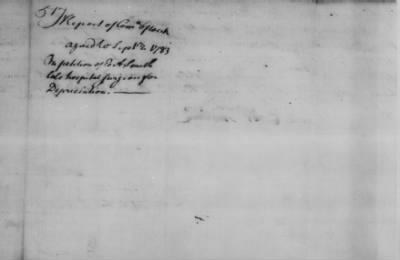 57 Report of Com. of 
agreed to Sept. 1783
On petition of Smith
late hospital surgeon for
Depreciation.